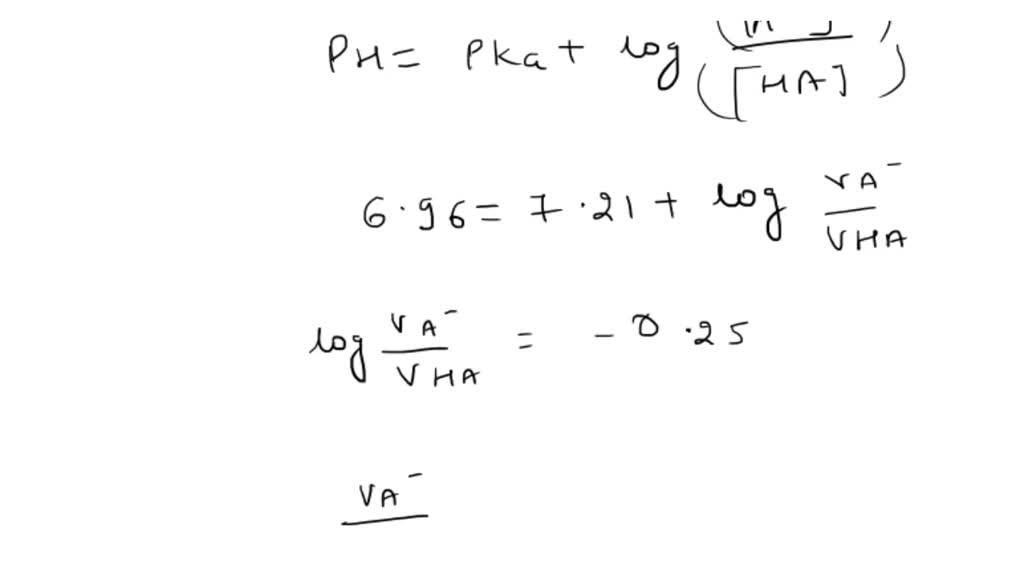 PH = PKa + log ([A⁻] / [HA])
6.96 = 7.21 + log VA⁻ / VHA
log VA⁻ / VHA = -0.25
VA⁻